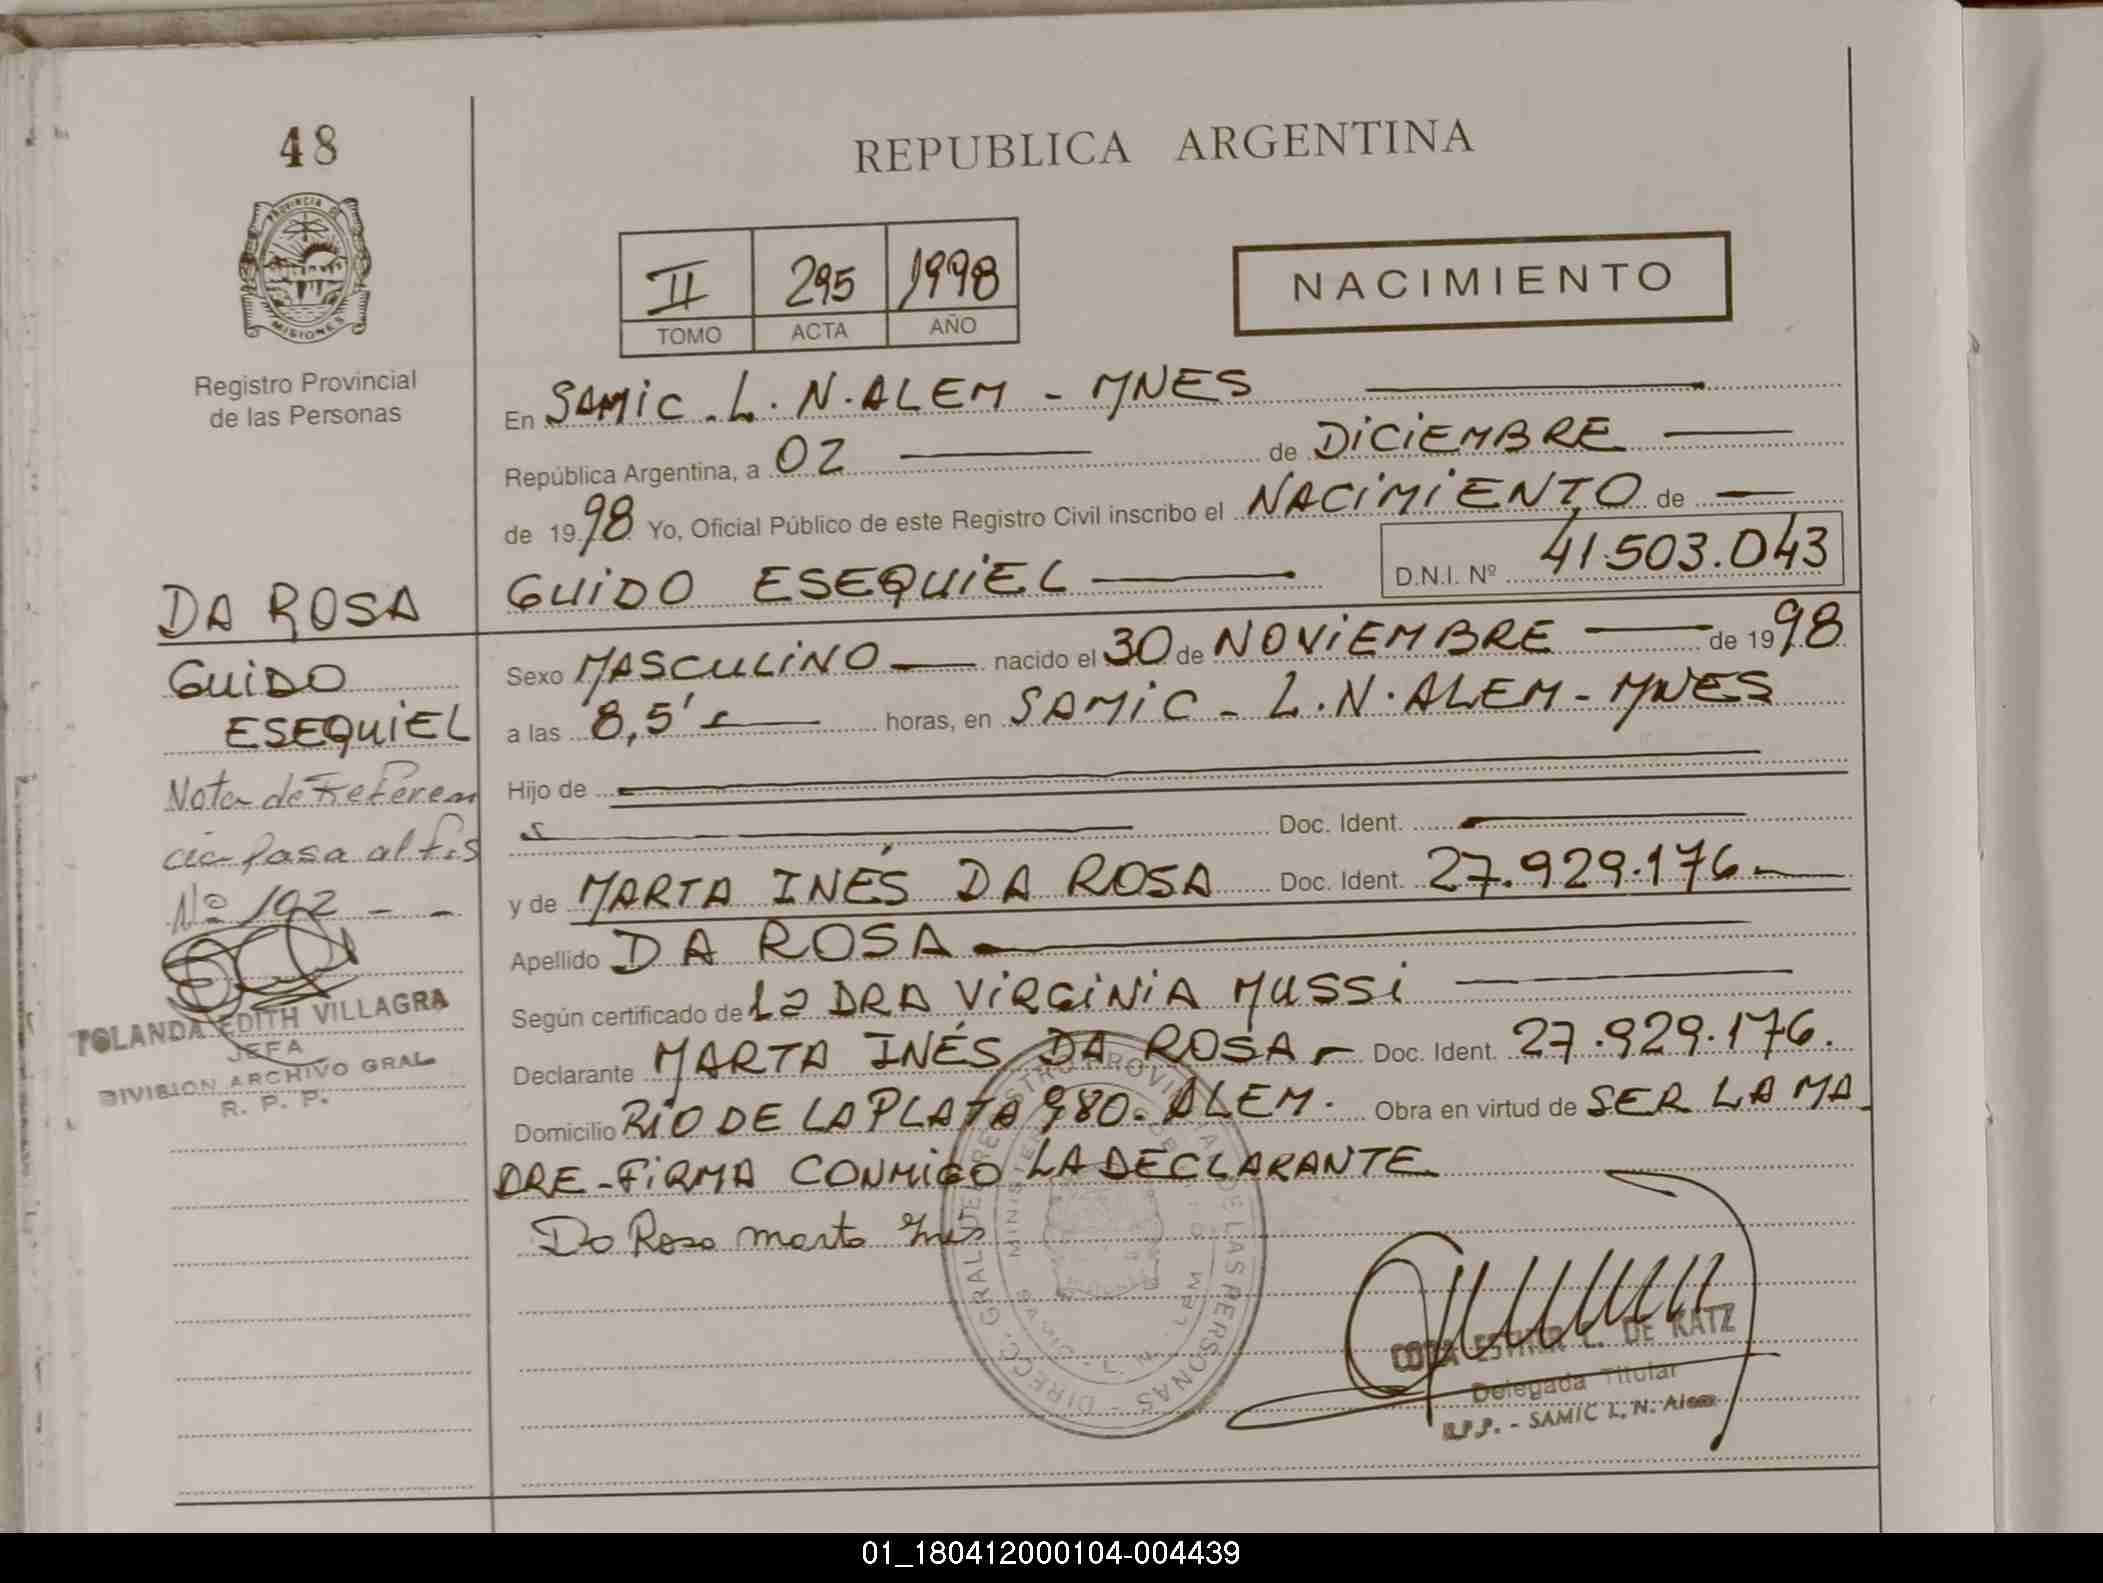 48
REPUBLICA ARGENTINA
PROVINCIA DE
MISIONES
Registro Provincial
de las Personas
II 295 1998
TOMO ACTA AÑO
NACIMIENTO
En SAMIC - L. N. ALEM - MNES
República Argentina, a 02 de DICIEMBRE
de 1998 Yo, Oficial Público de este Registro Civil inscribo el NACIMIENTO de
GUIDO ESEQUIEL D.N.I. Nº 41.503.043
DA ROSA
GUIDO
ESEQUIEL
Nota de Referen
cia pasa al
Nº 192 - -
YOLANDA EDITH VILLAGRA
JEFA
DIVISION ARCHIVO GRAL
R. P. P.
Sexo MASCULINO nacido el 30 de NOVIEMBRE de 1998
a las 8,5' horas, en SAMIC - L. N. ALEM - MNES
Hijo de
Doc. Ident.
y de MARTA INÉS DA ROSA Doc. Ident. 27.929.176
Apellido DA ROSA
Según certificado de La DRA VIRGINIA MUSSI
Declarante MARTA INÉS DA ROSA - Doc. Ident. 27.929.176.
Domicilio RIO DE LA PLATA 980. ALEM. Obra en virtud de SER LA MA
DRE - FIRMA CONMIGO LA DECLARANTE
Da Rosa marta Inés
DIRECC. GRAL DE REGISTRO PROVINCIAL DE LAS PERSONAS
SAMIC - L. N.
ESTHER L. DE KATZ
Delegada Titular
R.P.P. - SAMIC L. N. Alem
01_180412000104-004439